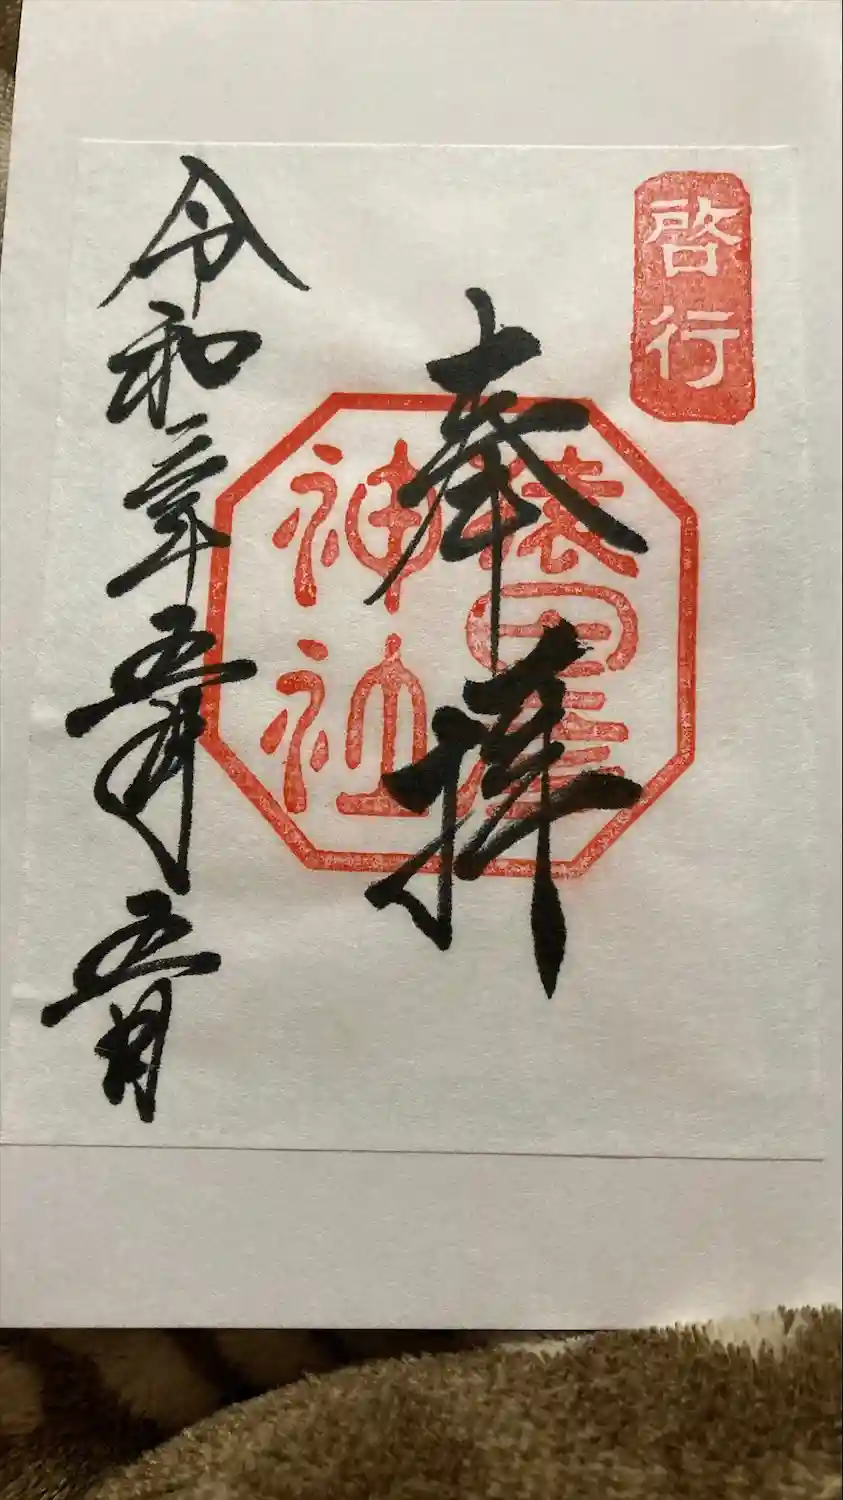 啓行
奉拝
猿田彦
神社
令和三年五月五日